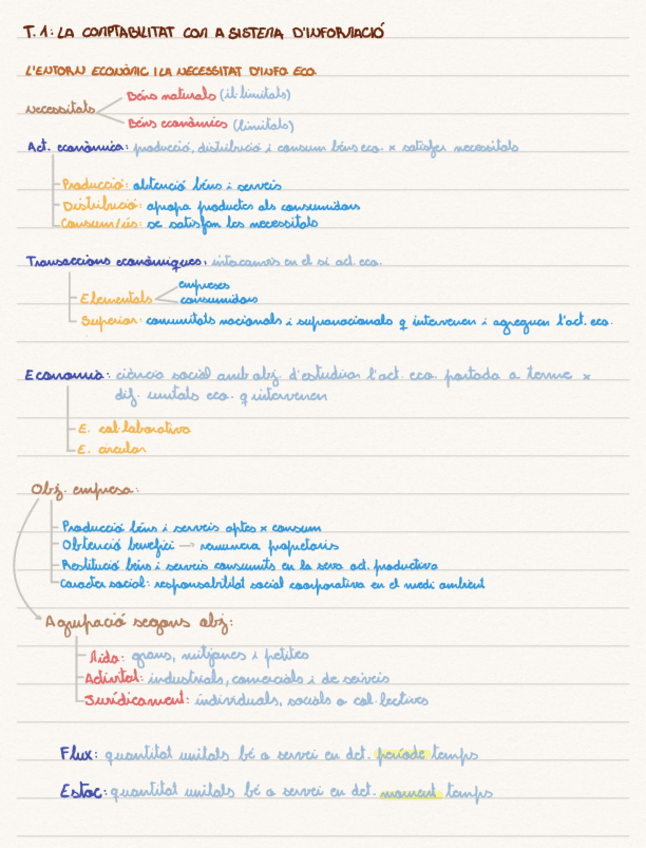 T.1: LA COMPTABILITAT COM A SISTEMA D'INFORMACIÓ
L'ENTORN ECONÒMIC I LA NECESSITAT D'INFO ECO
Necessitats
Béns naturals (il·limitats)
Béns econòmics (limitats)
Act. econòmica: producció, distribució i consum béns eco. x satisfer necessitats
Producció: obtenció béns i serveis
Distribució: apropa productes als consumidors
Consum/ús: se satisfan les necessitats
Transaccions econòmiques: intercanvis en el si act. eco.
Elementals
empreses
consumidors
Superior: comunitats nacionals i supranacionals q intervenen i agreguen l'act. eco.
Economia: ciència social amb obj. d'estudiar l'act. eco. portada a terme x
dif. unitats eco. q intervenen
E. col·laborativa
E. circular
Obj. empresa:
Producció béns i serveis aptes x consum
Obtenció benefici → remuncia propietaris
Restitució béns i serveis consumits en la seva act. productiva
Caracter social: responsabilitat social coorporativa en el medi ambient
Agrupació segons obj:
Mida: grans, mitjanes i petites
Activitat: industrials, comercials i de serveis
Jurídicament: individuals, socials o col·lectives
Flux: quantitat unitats bé o servei en det. període temps
Estoc: quantitat unitats bé o servei en det. moment temps